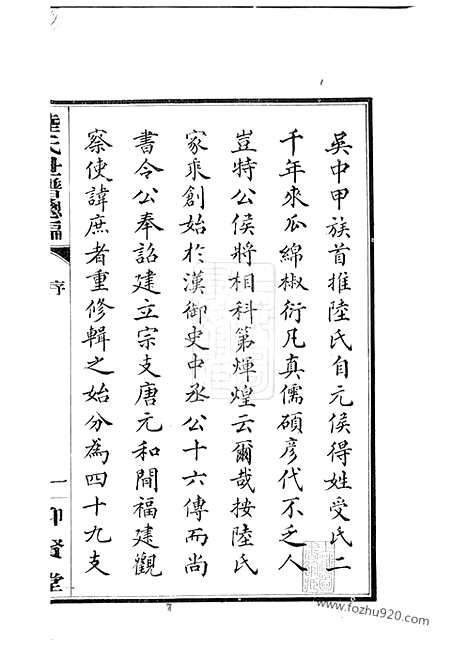 吳中甲族首推陸氏自元侯得姓受氏二
千年來瓜綿椒衍凡真儒碩彥代不乏人
豈特公侯將相科第煇煌云爾哉按陸氏
家乘創始於漢御史中丞公十六傳而尚
書令公奉詔建立宗支唐元和間福建觀
察使諱庶者重修輯之始分為四十九支
序
一
仰賢堂
www.fozhu920.com